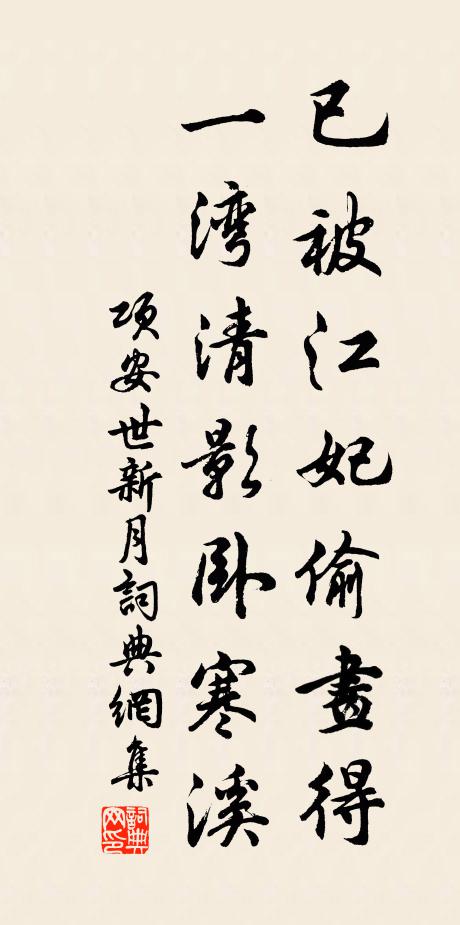 已被江妃偷畫得
一湾清影卧寒溪
项安世新月詞典網集
詞典
网印